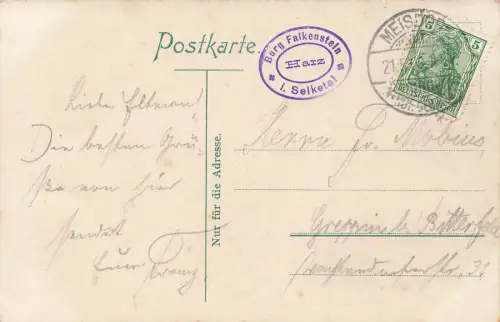 Postkarte.
Burg Falkenstein
Harz
i. Selketal
MEISDO
5
DEUTSCHES REICH
Nur für die Adresse.
Liebe Eltern!
Die besten Grü-
ße von hier
sendet
Euer Franz
Herrn Fr. Möbius
Greppin b/ Bitterfeld